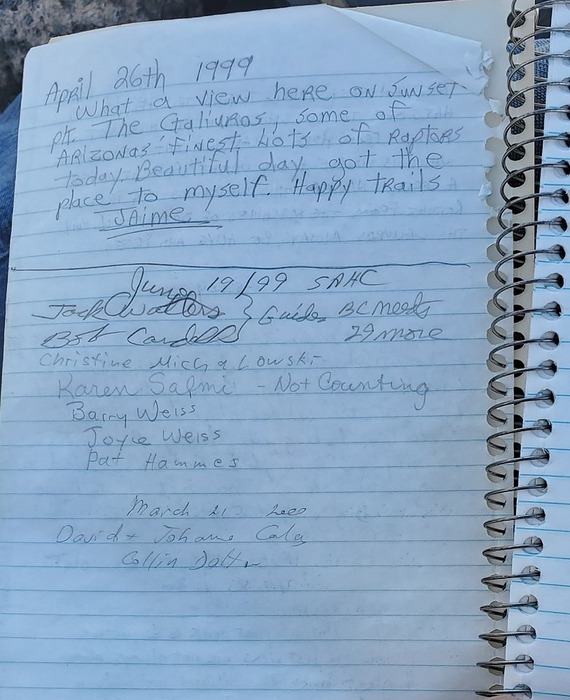 April 26th 1999
What a view here on Sunset
pk. The Galiuros, some of
ARIZONAS finest. Lots of Raptors
today. Beautiful day got the
place to myself. Happy trails
JAime
June 19/99 SAHC
Jack Watters } Guides BC Meets
Bob Cardell 29 more
Christine Michalowski
Karen Salmi - Not Counting
Barry Weiss
Joyce Weiss
Pat Hammes
March 21
David + Johane
Collin